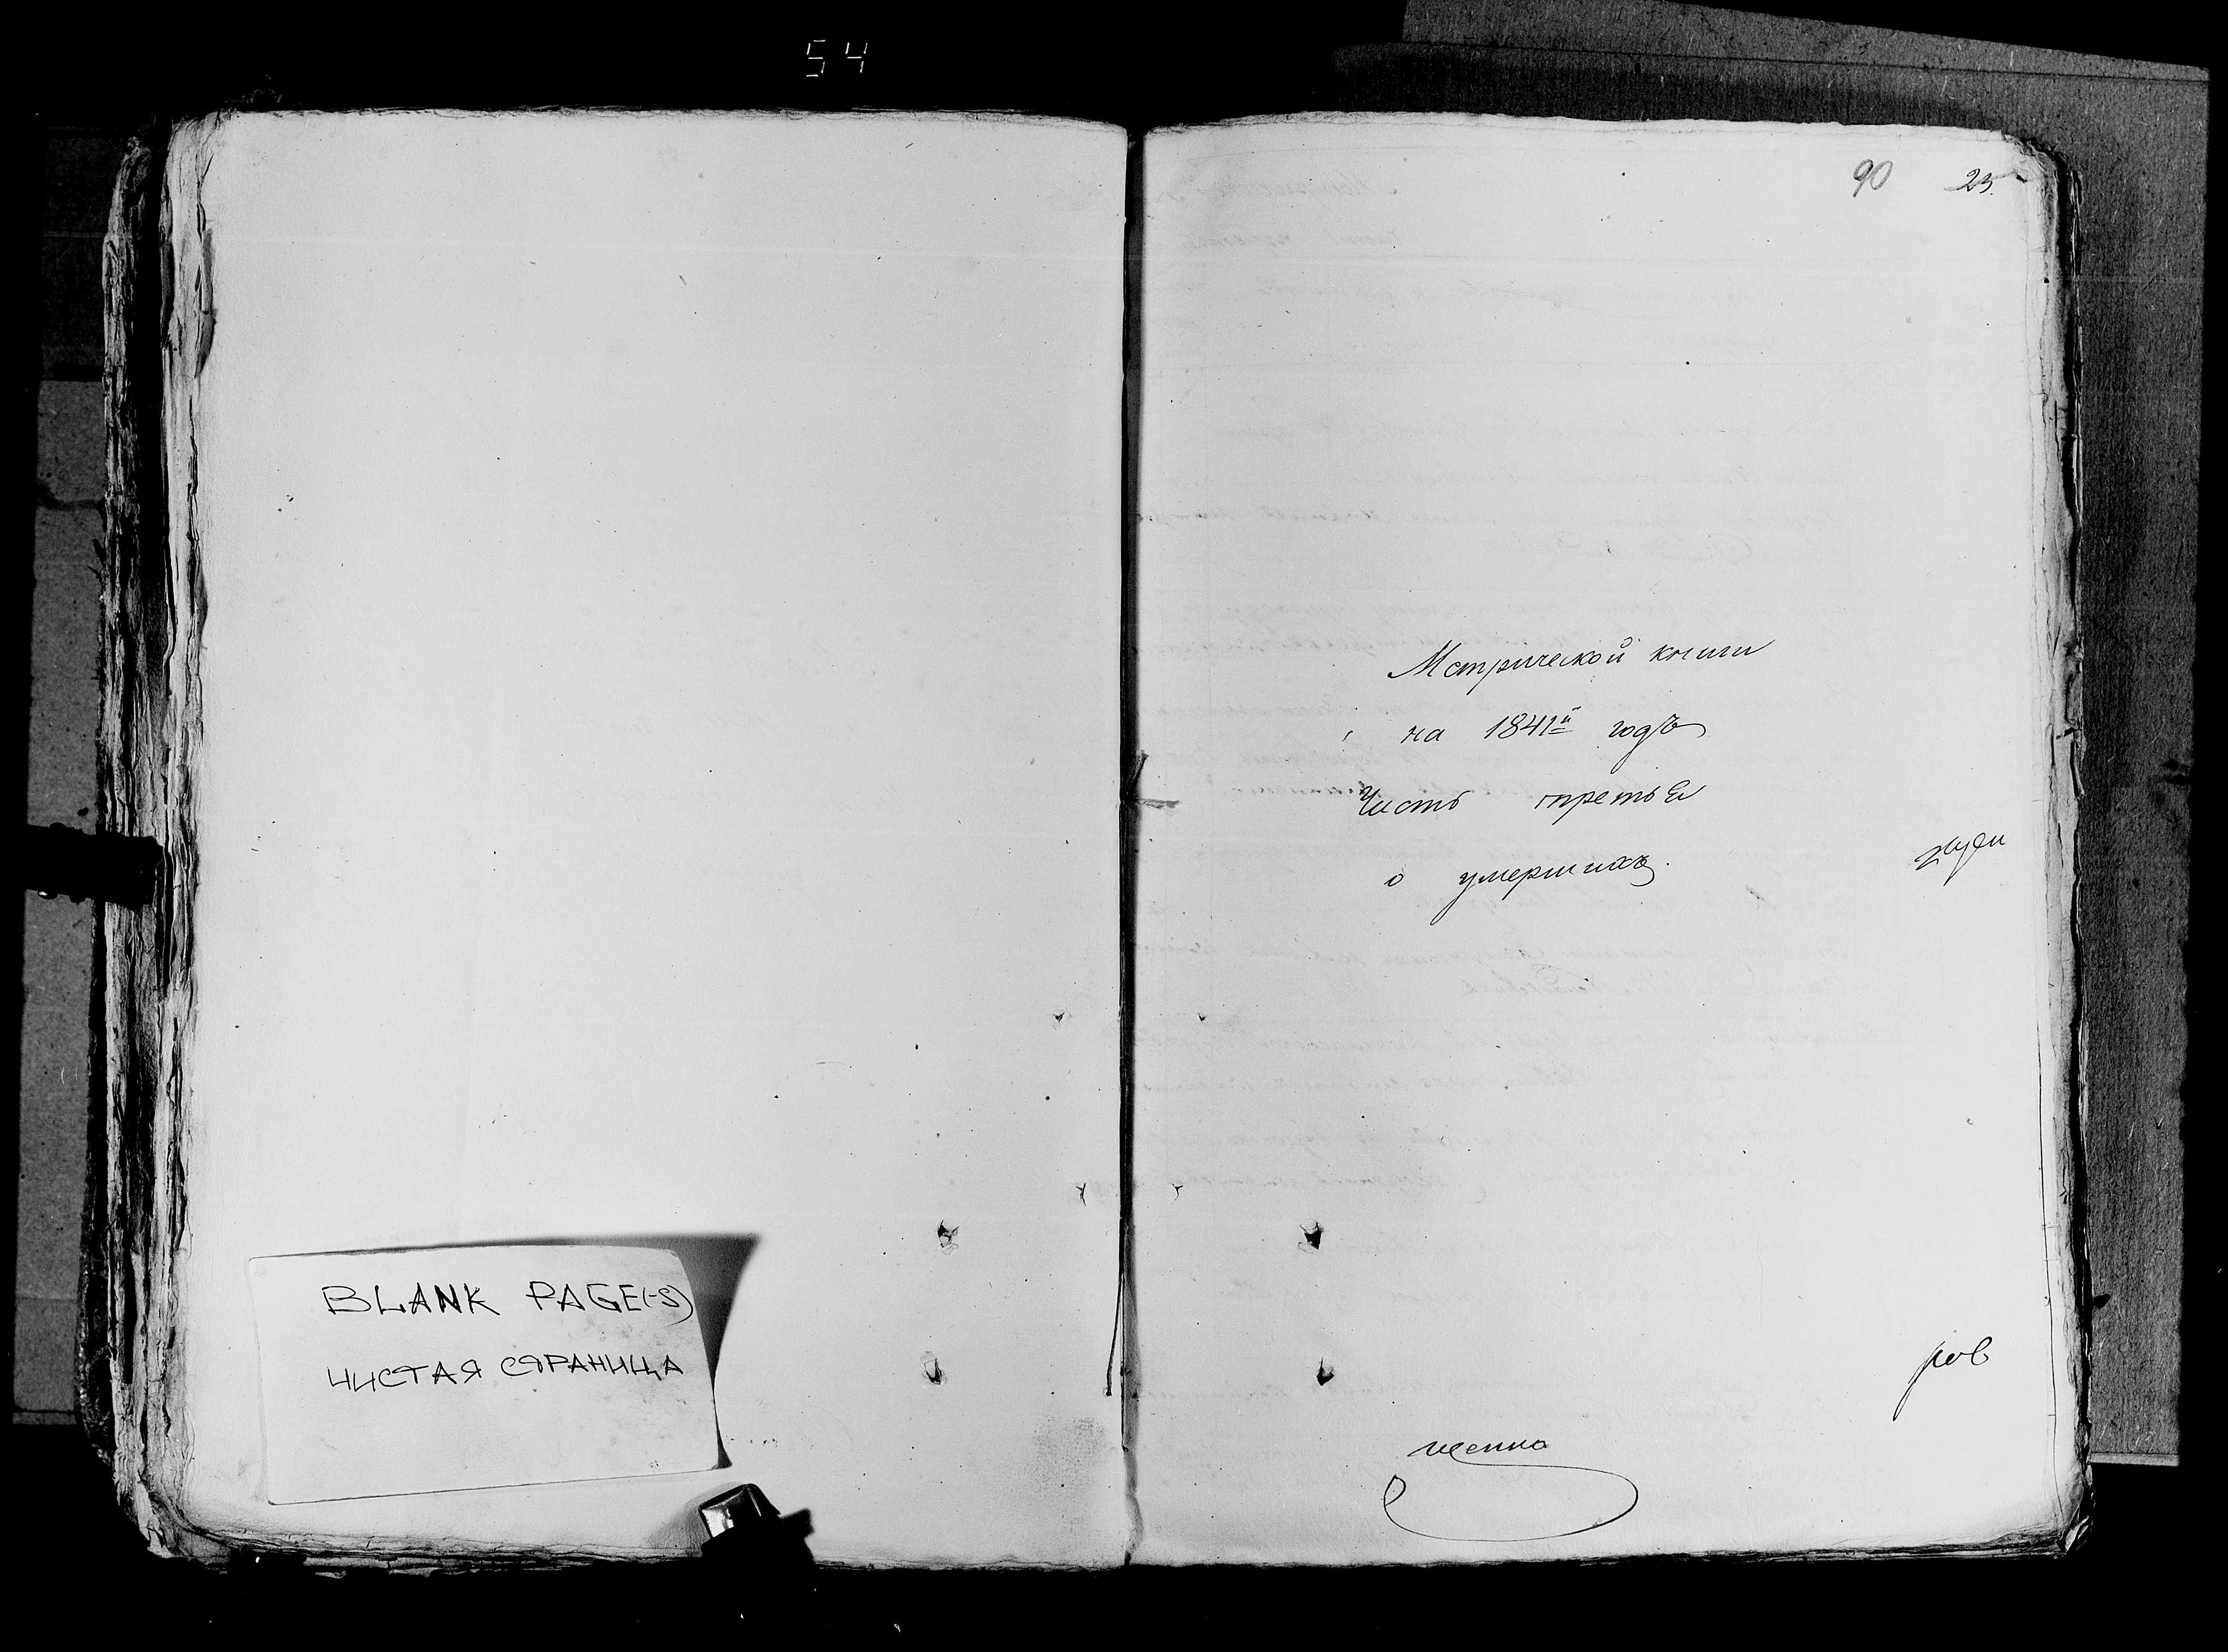 54
BLANK PAGE(-S)
ЧИСТАЯ СТРАНИЦА
90 23.
Метрической книги
на 1841й годъ
Часть третья
о умершихъ.
ров